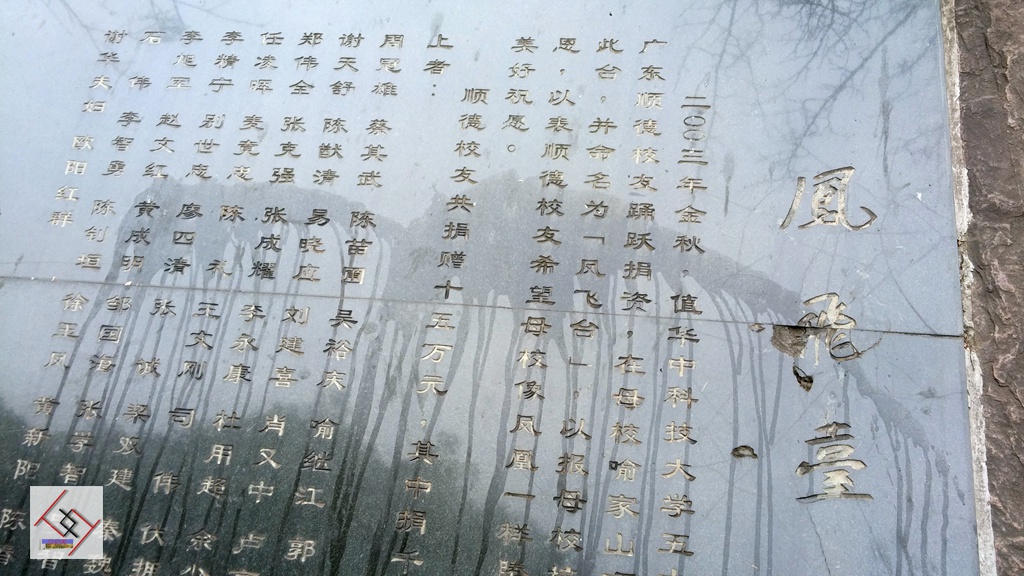 凤飛臺
二〇〇三年金秋，值华中科技大学五
广东顺德校友踊跃捐资，在母校喻家山
此台，并命名为「凤飞台」，以报母校
恩，以表顺德校友希望母校像凤凰一样
美好祝愿。
顺德校友共捐赠十五万元，其中捐
上者：
周冠雄 蔡其武 陈苗圃 吴裕庆 喻继江 郭
谢天舒 陈猷清 易晓应 刘建喜 肖又中 卢
郑伟全 张克强 张成耀 李永康 杜用超 余
任凌晖 陈 礼 王文刚 司 伟 伏拥
李精宁 别世志 廖四清 张 诚 梁双建 秦魏
李旭军 赵文红 黄成明 邹国海 张学智
石 伟 李智勇 陈钊垣 徐玉凤 黄新阳 陈
谢华夫妇 欧阳红群